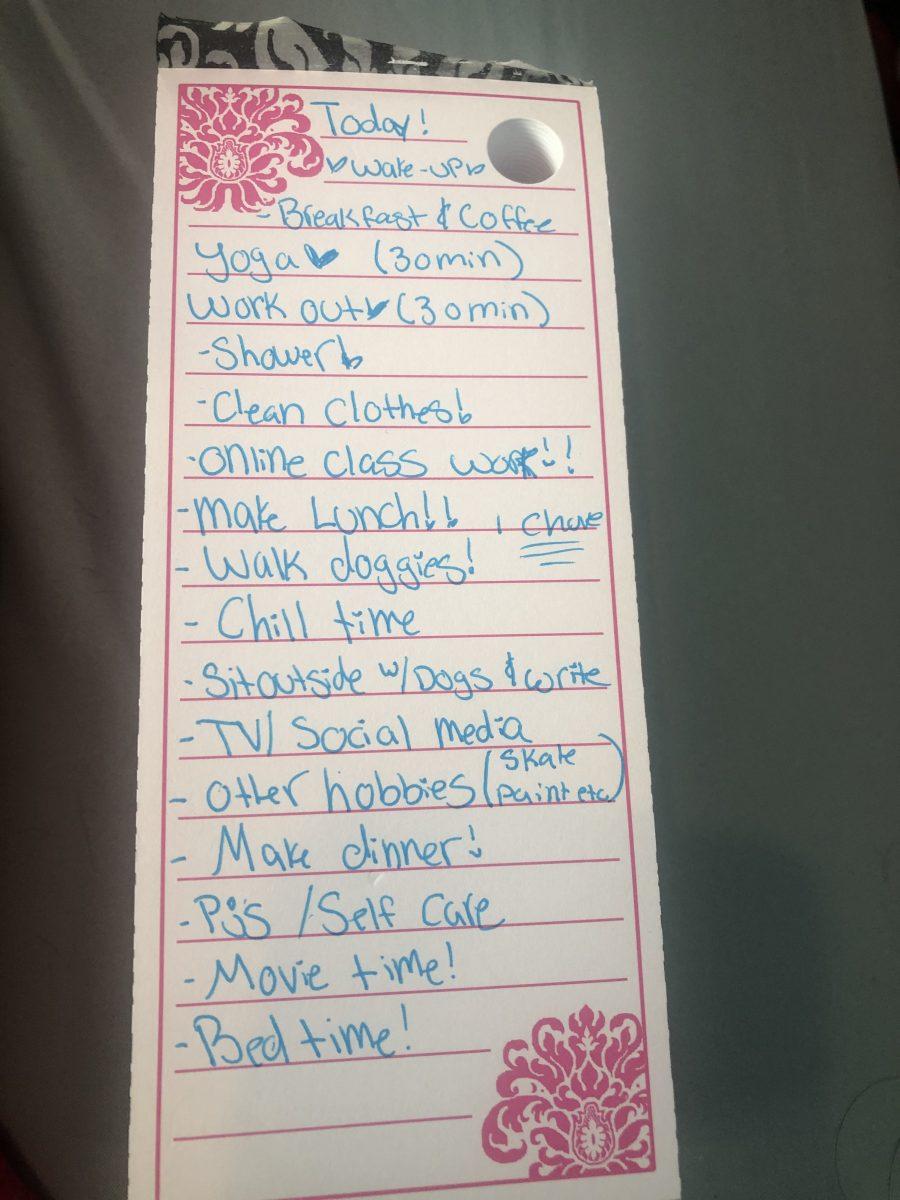 Today!
Wake-up
- Breakfast & Coffee
Yoga (30min)
Work out (30min)
- Shower!
- Clean Clothes!
- online class work!!
- make Lunch!! 1 Chore
- Walk doggies!
- Chill time
- Sit outside w/ Dogs & write
- TV/ Social media
- Other hobbies (Skate
Paint etc)
- Make dinner!
- Pjs /Self Care
- Movie time!
- Bed time!